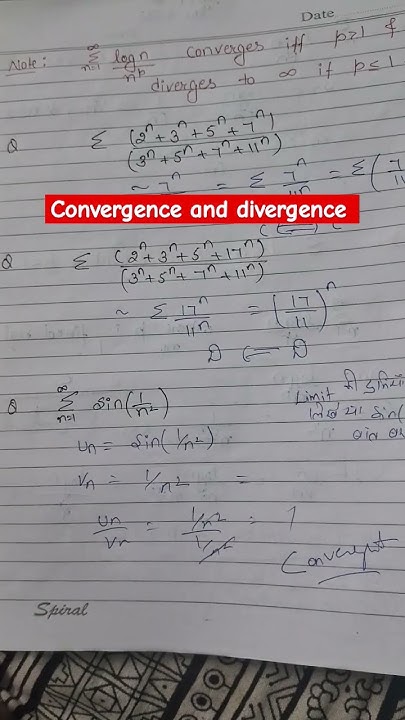 Date
Note: ∞Σn=1 logn/n^p converges iff p>1 &
diverges to ∞ if p≤1
Q Σ (2^n+3^n+5^n+7^n)/(3^n+5^n+7^n+11^n)
~ 7^n = Σ 7^n/11^n = Σ(7/
Convergence and divergence
Q Σ (2^n+3^n+5^n+17^n)/(3^n+5^n+7^n+11^n)
~ Σ 17^n/11^n = (17/11)^n
D ⟸ D
Q ∞Σn=1 sin(1/n^2)
Limit
un = sin(1/n^2)
vn = 1/n^2 =
un/vn = (1/n^2)/(1/n^2) = 1
Convergent
Spiral